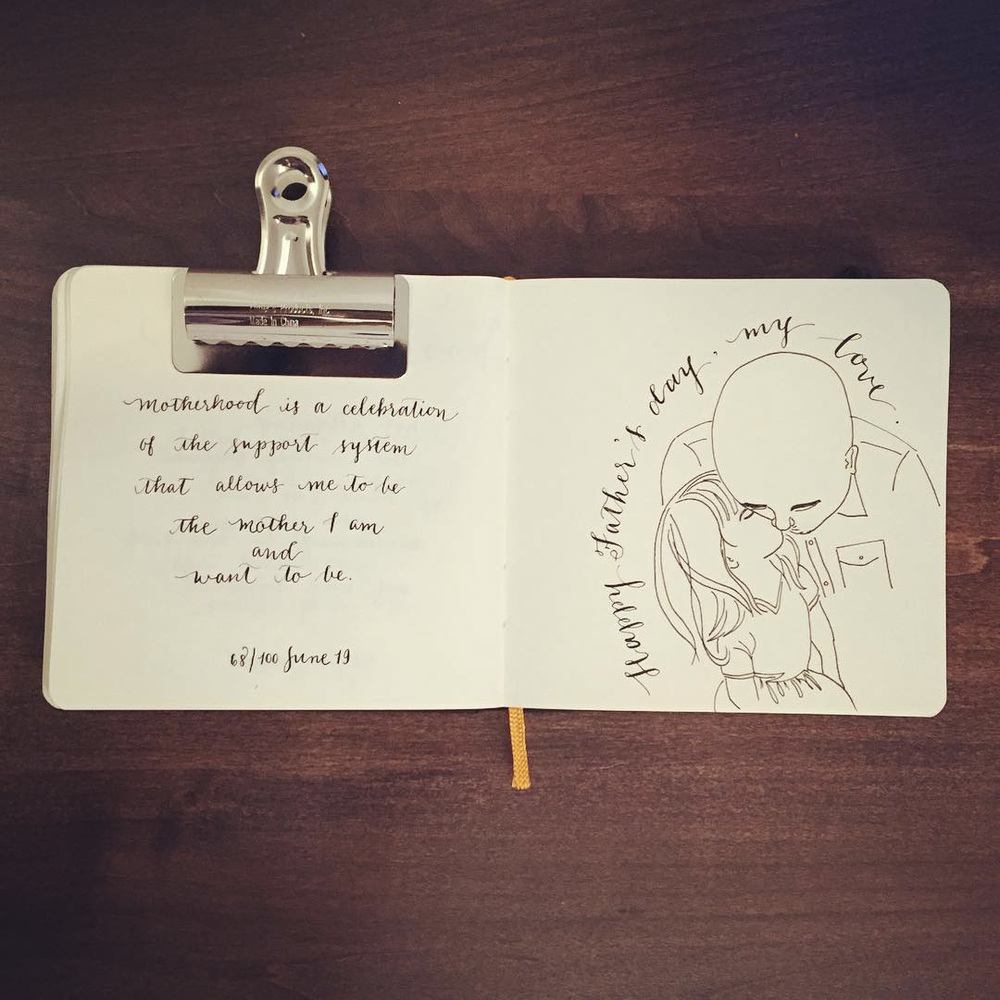 Products, Inc.
Made in China
Motherhood is a celebration
of the support system
that allows me to be
the mother I am
and
want to be.
68/100 June 19
Happy Father's day, my love.